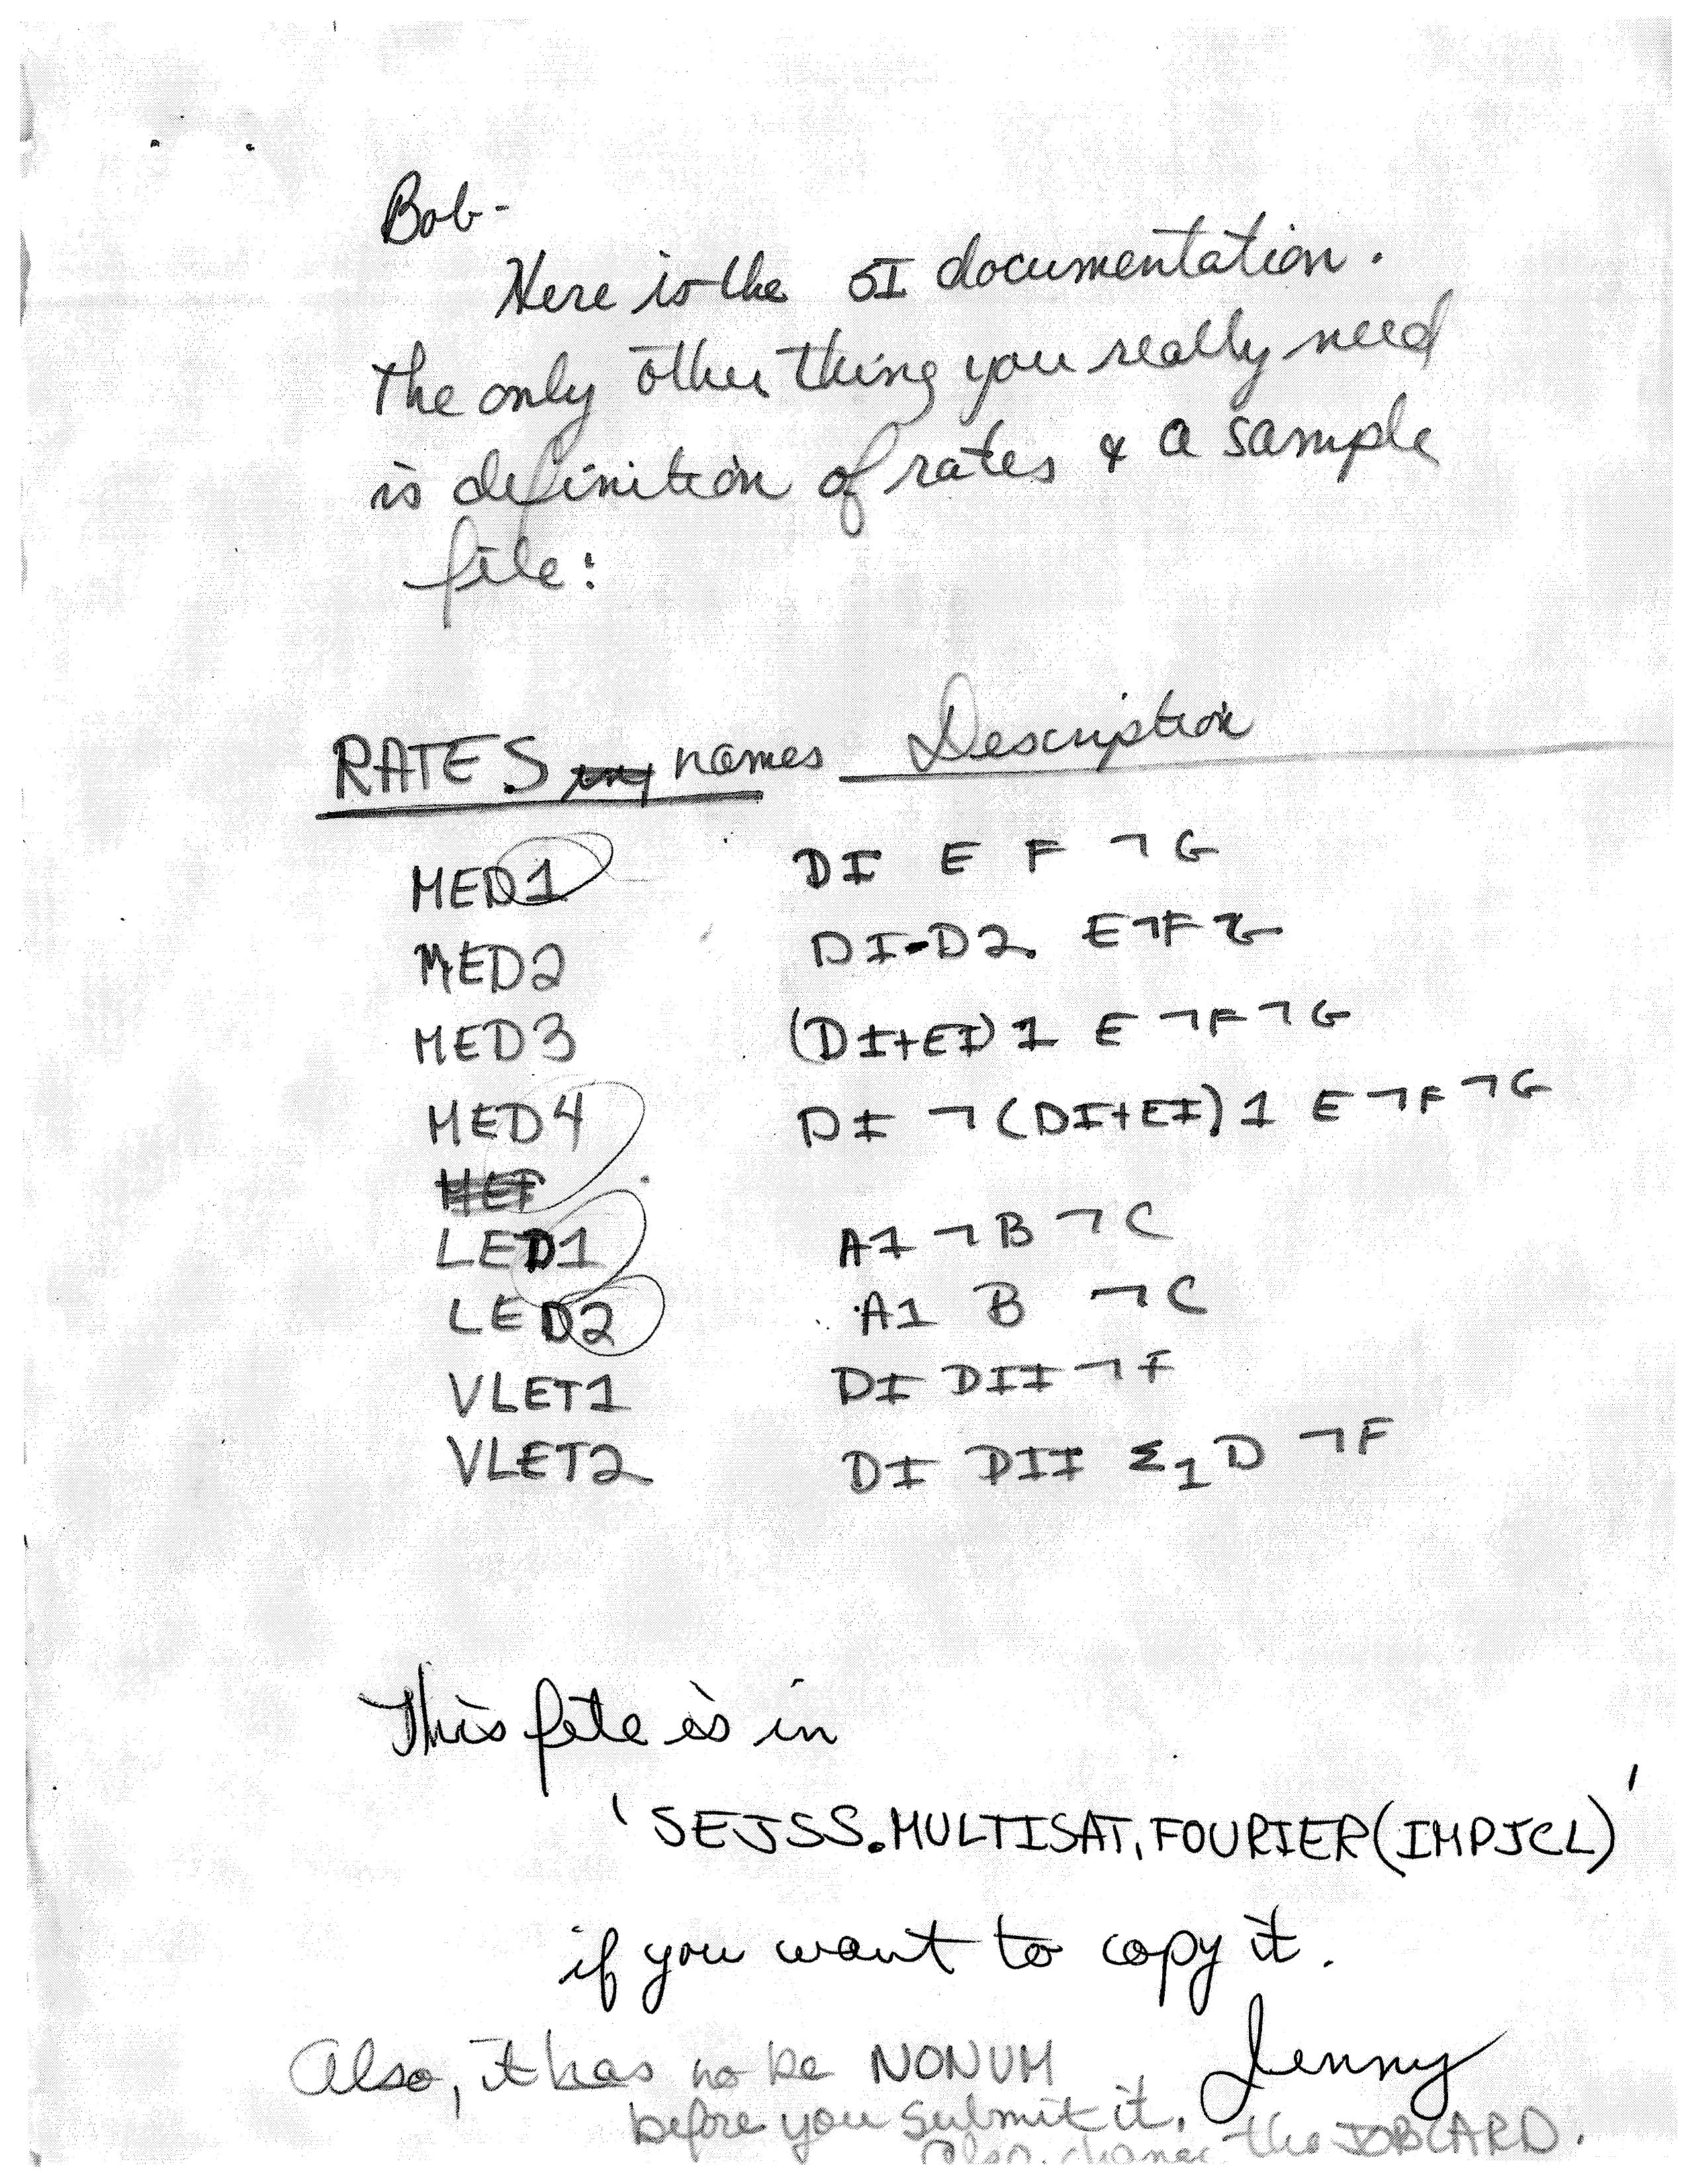 Bob-
Here is the SI documentation.
The only other thing you really need
is definition of rates & a sample
file:
RATES names Description
MED1 DI E F ¬G
MED2 DI-D2 E¬F¬G
MED3 (DI+EI)1 E¬F¬G
MED4 DI ¬(DI+EI)1 E¬F¬G
LED1 A1 ¬B ¬C
LED2 A1 B ¬C
VLET1 DI DII ¬F
VLET2 DI DII Σ1D ¬F
This file is in
'SEJSS.MULTISAT.FOURIER(IMPJCL)'
if you want to copy it.
Jenny
Also, it has to be NONUM
before you submit it.
Also, change the JOBCARD.